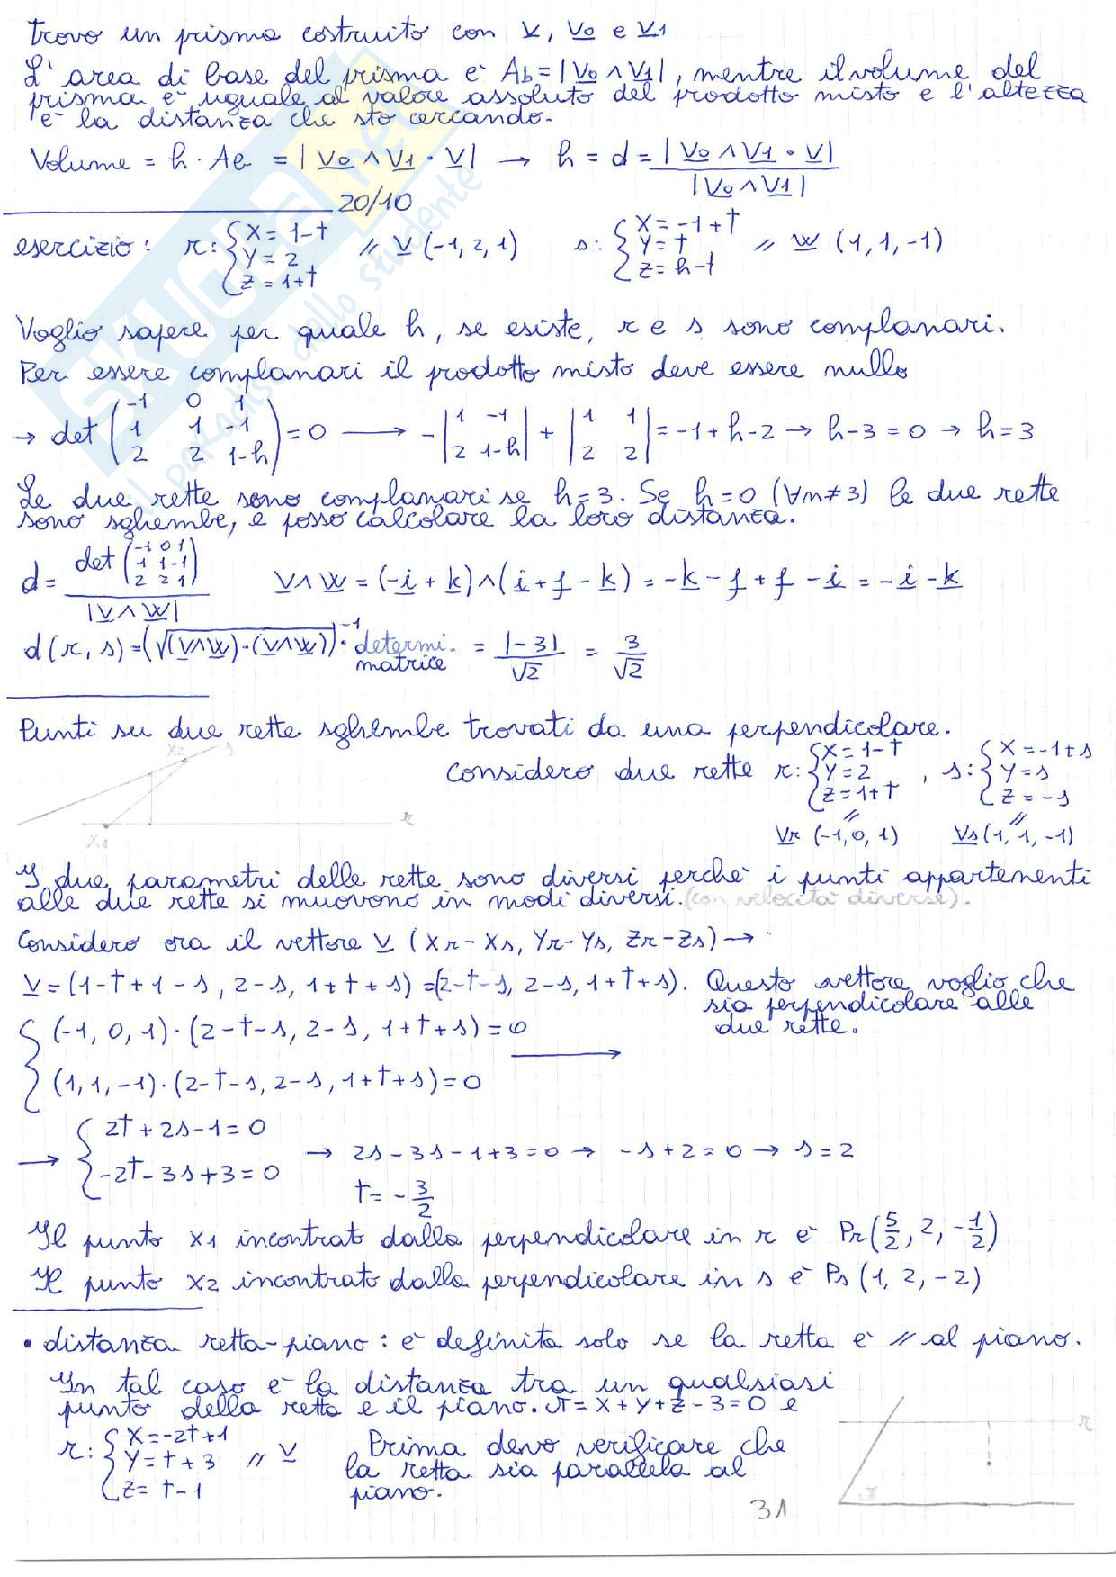 trovo un prisma costruito con v, v0 e v1
L'area di base del prisma è Ab=|v0 ∧ v1|, mentre il volume del
prisma è uguale al valore assoluto del prodotto misto e l'altezza
è la distanza che sto cercando.
Volume = h · Ab = |v0 ∧ v1 · v| → h = d = |v0 ∧ v1 · v| / |v0 ∧ v1|
20/10
esercizio: r: { x = 1-t // v (-1, 2, 1) s: { x = -1+t // w (1, 1, -1)
y = 2 y = t
z = 1+t z = h-t
Voglio sapere per quale h, se esiste, r e s sono complanari.
Per essere complanari il prodotto misto deve essere nullo
→ det ( -1 0 1 / 1 1 -1 / 2 2 1-h ) = 0 → - | 1 -1 / 2 1-h | + | 1 1 / 2 2 | = -1+h-2 → h-3=0 → h=3
Le due rette sono complanari se h=3. Se h=0 (∀m≠3) le due rette
sono sghembe, e posso calcolare la loro distanza.
d = det ( -1 0 1 / 1 1 -1 / 2 2 1 ) / |v∧w| v∧w = (-i+k)∧(i+j-k) = -k-j+j-i = -i-k
d(r,s) = (√(v∧w)·(v∧w))⁻¹ · determi. matrice = |-3| / √2 = 3/√2
Punti su due rette sghembe trovati da una perpendicolare.
x2 s
x1 r
Considero due rette r: { x=1-t , s: { x=-1+s
y=2 y=s
z=1+t z=-s
// //
vr (-1,0,1) vs (1,1,-1)
I due parametri delle rette sono diversi perché i punti appartenenti
alle due rette si muovono in modi diversi. (con velocità diverse).
Considero ora il vettore v (xr-xs, yr-ys, zr-zs) →
v=(1-t+1-s, 2-s, 1+t+s) =(2-t-s, 2-s, 1+t+s). Questo vettore voglio che
sia perpendicolare alle
due rette.
{ (-1, 0, 1)·(2-t-s, 2-s, 1+t+s)=0
(1, 1, -1)·(2-t-s, 2-s, 1+t+s)=0 →
→ { 2t+2s-1=0 → 2s-3s-1+3=0 → -s+2=0 → s=2
-2t-3s+3=0 t=-3/2
Il punto x1 incontrato dalla perpendicolare in r è Pr(5/2, 2, -1/2)
Il punto x2 incontrato dalla perpendicolare in s è Ps (1, 2, -2)
• distanza retta-piano: è definita solo se la retta è // al piano.
In tal caso è la distanza tra un qualsiasi
punto della retta e il piano. π=x+y+z-3=0 e
r: { x=-2t+1 // v Prima devo verificare che
y=t+3 la retta sia parallela al
z=t-1 piano.
r
π
31
SKUOLA.net
il paradiso dello studente